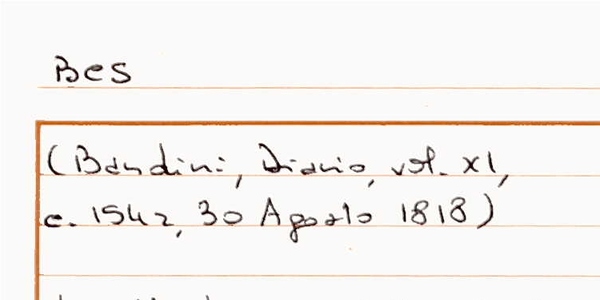 Bes
(Bandini, Diario, vol. XI,
c. 154r, 30 Agosto 1818)